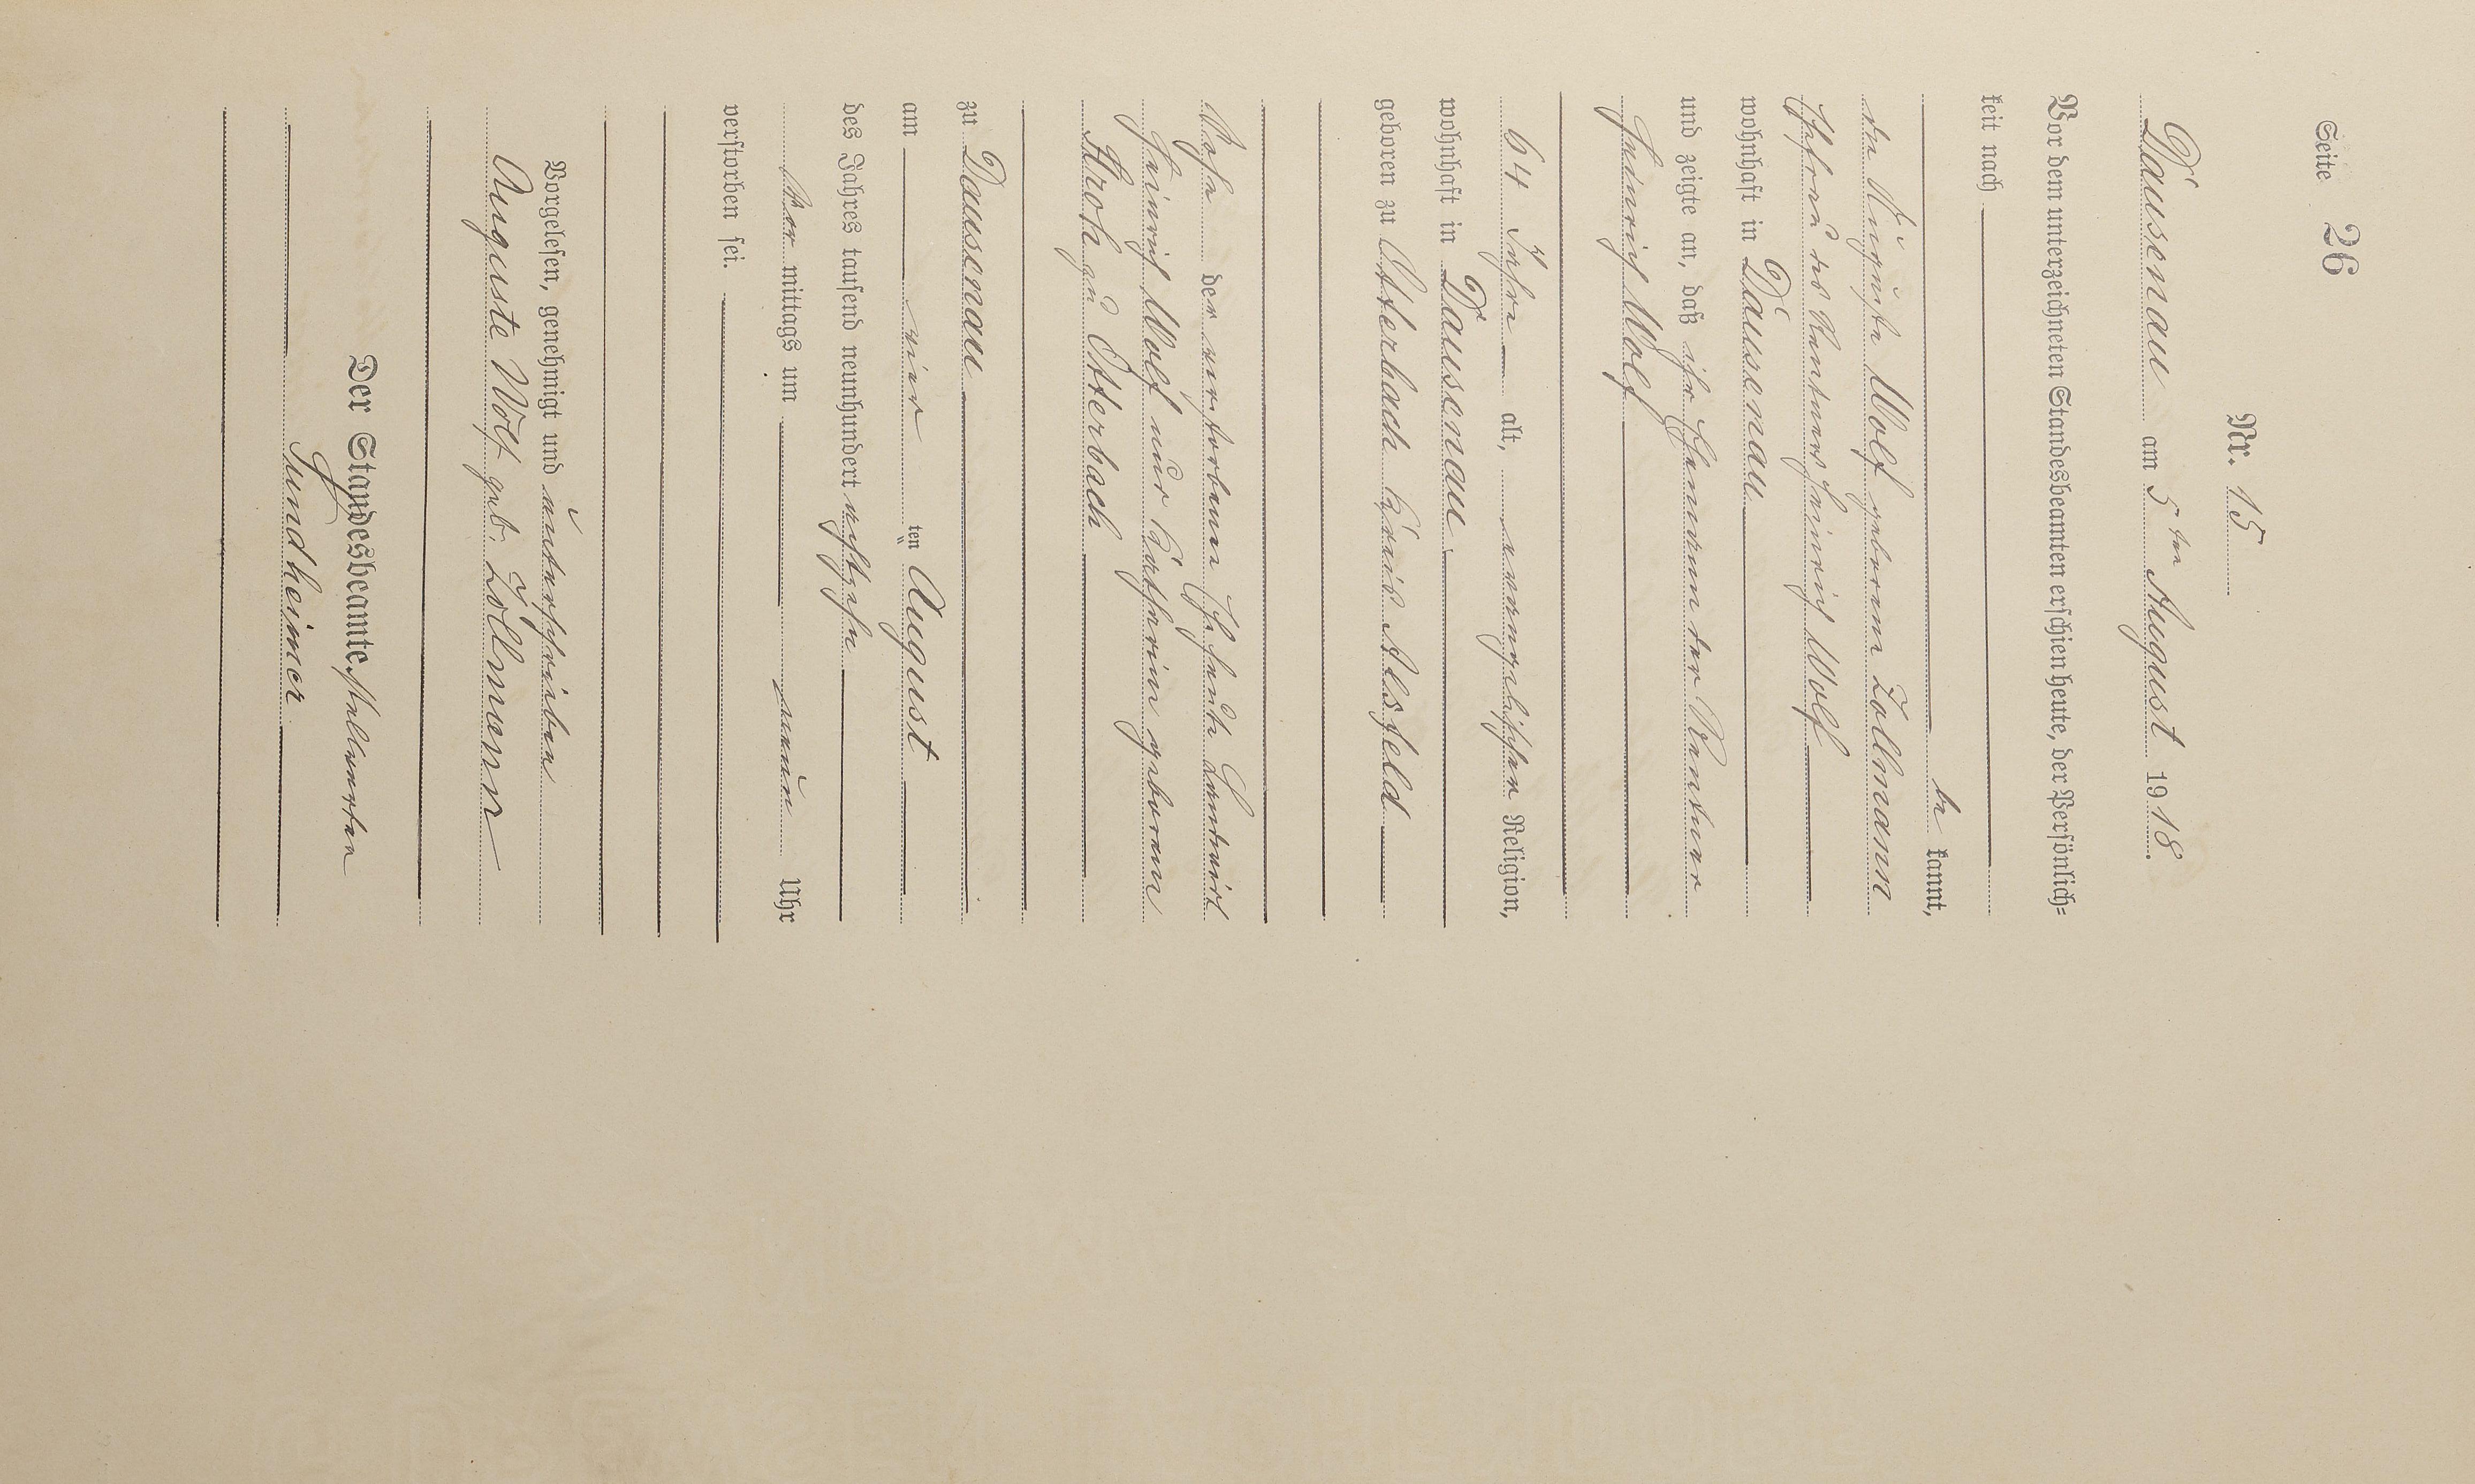 Seite 26
Nr. 15
Dausenau am 5ten August 1918.
Vor dem unterzeichneten Standesbeamten erschien heute, der Persönlich-
keit nach
be kannt,
die Auguste Wolf geborene Zöllmann
Ehefrau des Rentners Heinrich Wolf
wohnhaft in Dausenau
und zeigte an, daß ihr Ehemann der Rentner
Heinrich Wolf
64 Jahre alt, evangelischer Religion,
wohnhaft in Dausenau.
geboren zu Otterbach Kreis Alsfeld
Sohn der verstorbenen Eheleute Landwirt
Heinrich Wolf und Katharina geborene
Kroh zu Otterbach
zu Dausenau
am vier ten August
des Jahres tausend neunhundert achtzehn
Vor mittags um neun Uhr
verstorben sei.
Vorgelesen, genehmigt und unterschrieben
Auguste Wolf geb. Zöllmann
Der Standesbeamte.
Sundheimer